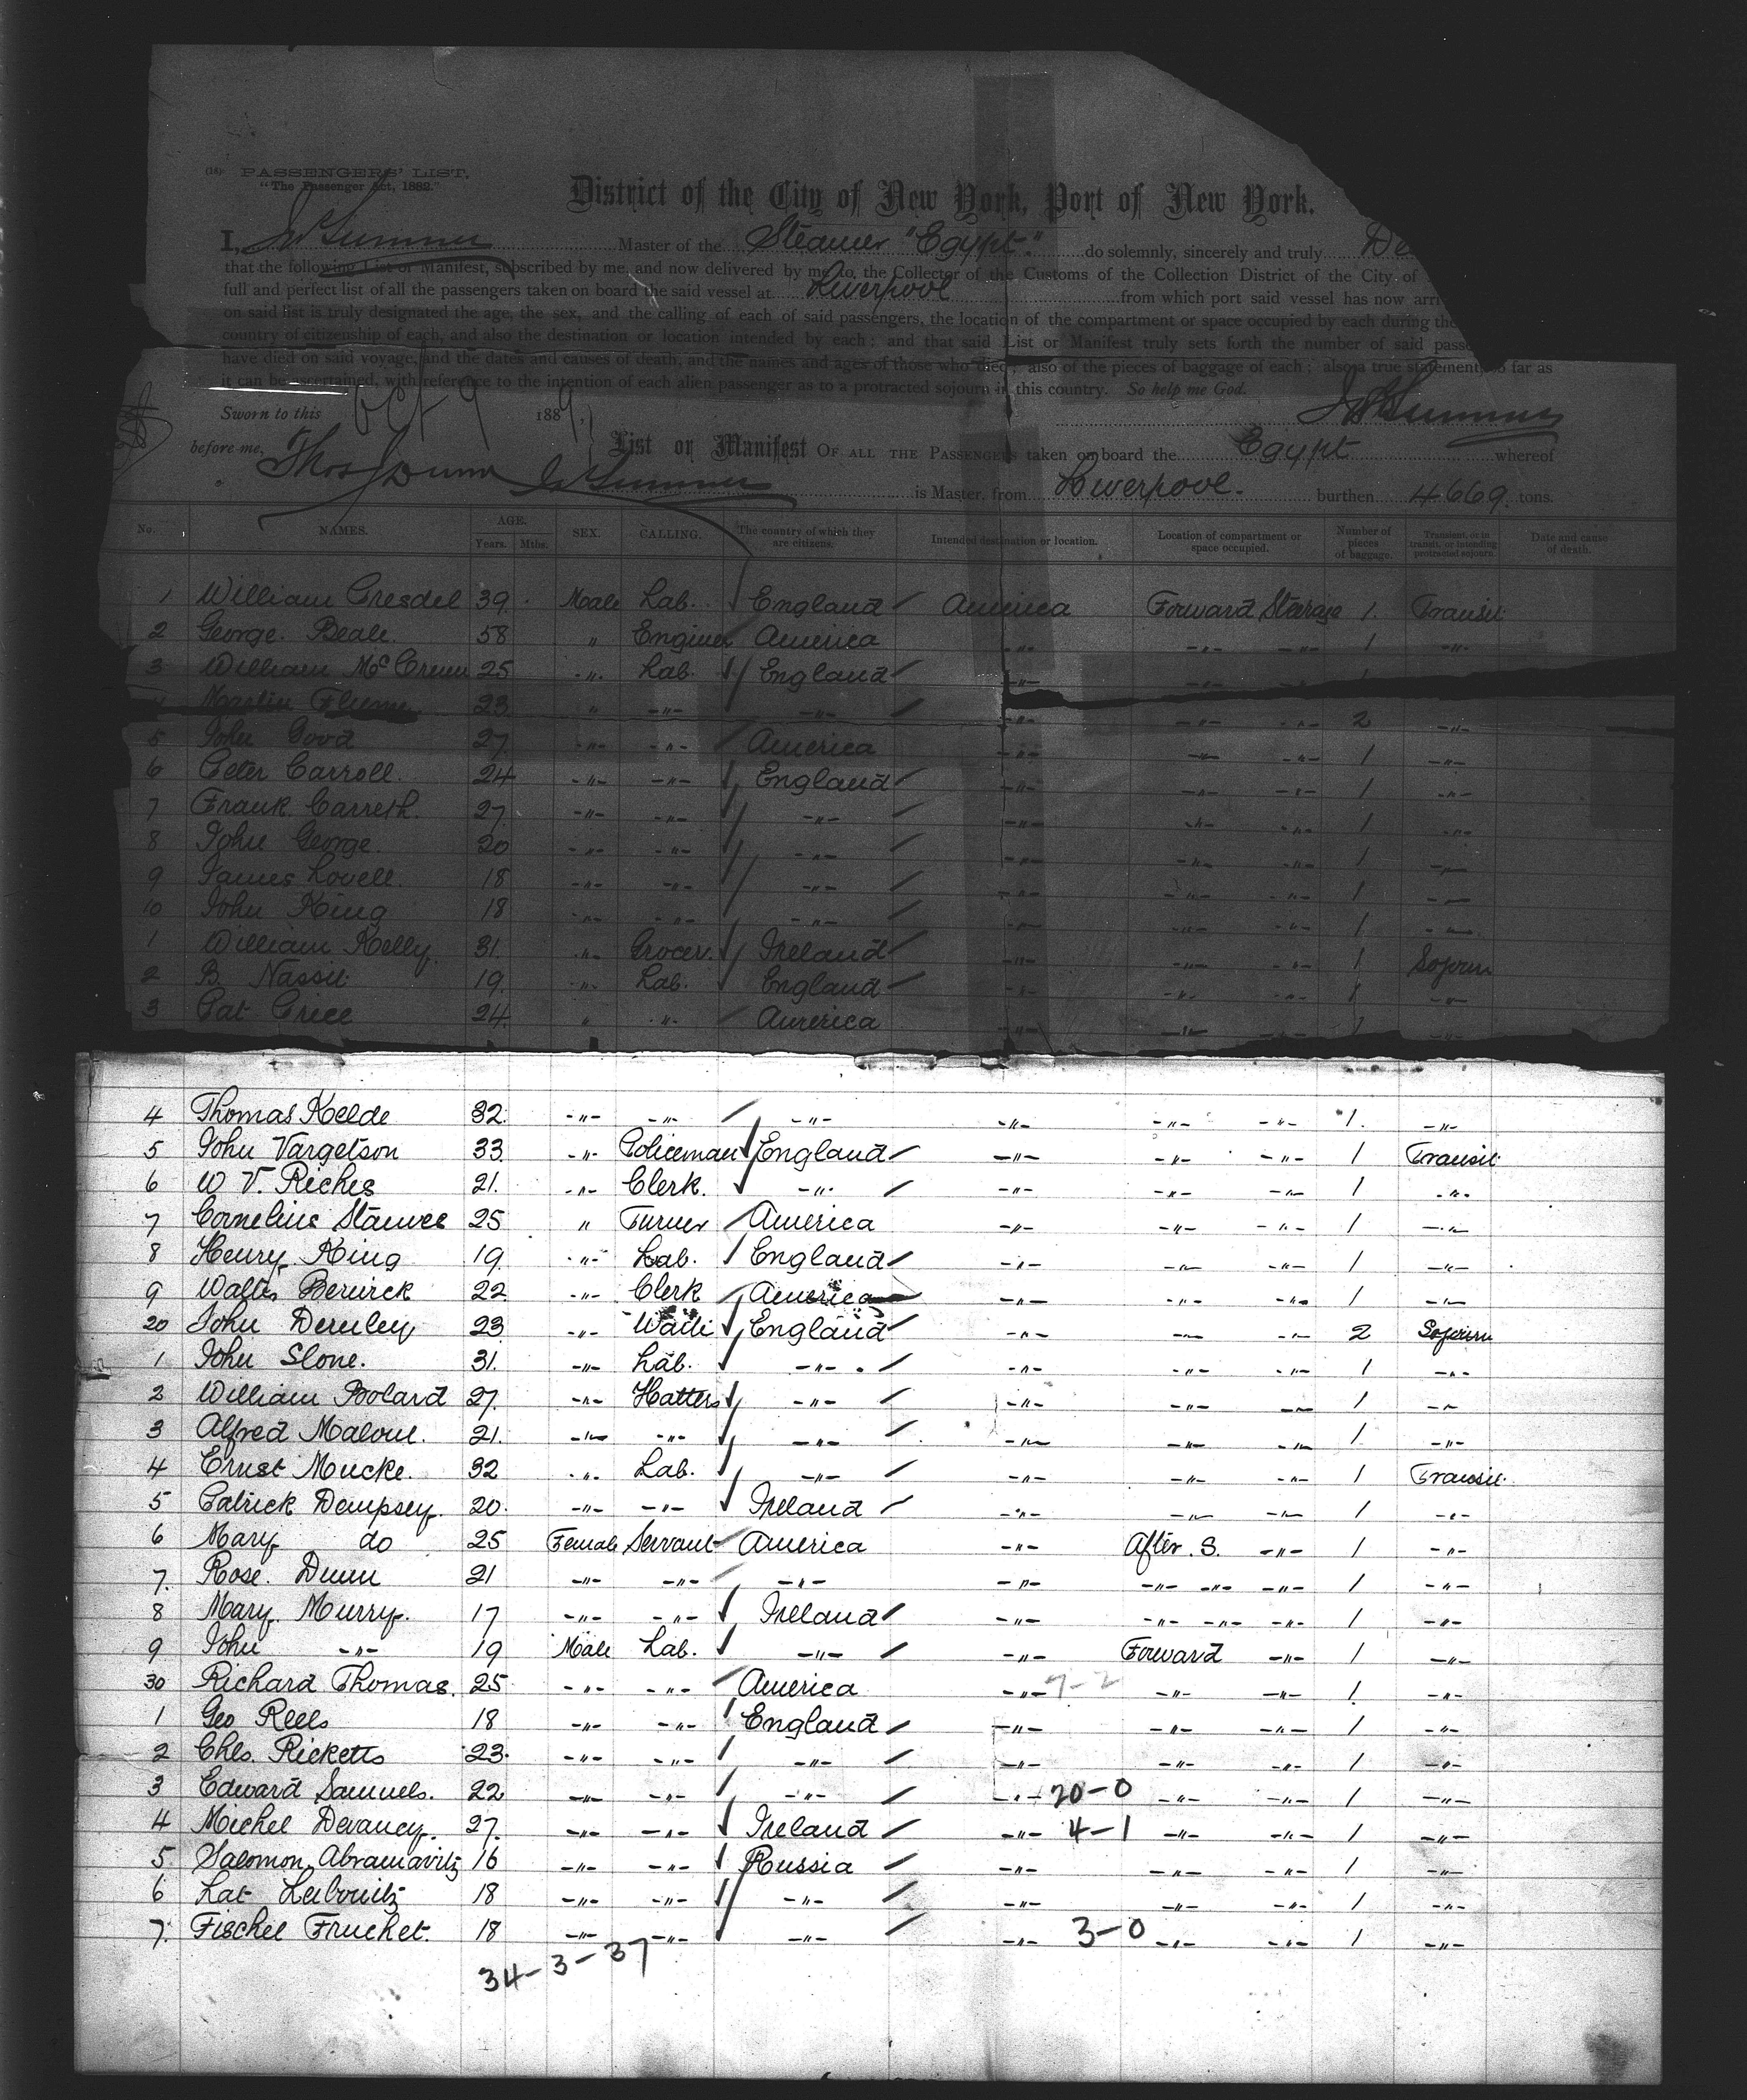 (18) PASSENGERS' LIST.
"The Passenger Act, 1882."
District of the City of New York, Port of New York.
I, Master of the Steamer "Egypt." do solemnly, sincerely and truly De
that the following List or Manifest, subscribed by me, and now delivered by me to the Collector of the Customs of the Collection District of the City of
full and perfect list of all the passengers taken on board the said vessel at Liverpool from which port said vessel has now arri
on said list is truly designated the age, the sex, and the calling of each of said passengers, the location of the compartment or space occupied by each during the
country of citizenship of each, and also the destination or location intended by each; and that said List or Manifest truly sets forth the number of said passe
have died on said voyage, and the dates and causes of death, and the names and ages of those who died; also of the pieces of baggage of each; also a true statement, so far as
it can be ascertained, with reference to the intention of each alien passenger as to a protracted sojourn in this country. So help me God.
Sworn to this Oct 9 1889,
before me, Thos J Dunn
List or Manifest OF ALL THE PASSENGERS taken on board the Egypt whereof
is Master, from Liverpool. burthen 4669. tons.
No. NAMES. AGE. Years. Mths. SEX. CALLING. The country of which they are citizens. Intended destination or location. Location of compartment or space occupied. Number of pieces of baggage. Transient, or in transit, or intending protracted sojourn. Date and cause of death.
1 William Gresdel 39. Male Lab. England America Forward Steerage 1. Transit
2 George. Beale. 58 " Engineer America -"- -"- -"- 1 -"-
3 William 25 -"- Lab. England -"- -"- -"- 1
4 Martin 23 " -"- -"- -"- -"- -"- 2 -"-
5 John Good 27. -"- -"- America -"- -"- -"- 1 -"-
6 Peter Carroll. 24 -"- -"- England -"- -"- -"- 1 -"-
7 Frank Carreth. 27 -"- -"- -"- -"- -"- -"- 1 -"-
8 John George. 20 -"- -"- -"- -"- -"- -"- 1 -"-
9 James Lovell. 18 -"- -"- -"- -"- -"- -"- 1 -"-
10 John King 18 -"- -"- -"- -"- -"- -"- 1 -"-
1 William Kelly. 31. -"- Grocer. Ireland -"- -"- -"- 1 Sojourn
2 B. 19. -"- Lab. England -"- -"- -"- 1 -"-
3 Pat Grice 24. " -"- America -"- -"- -"- 1 -"-
4 Thomas Keelde 32. -"- -"- -"- -"- -"- -"- 1. -"-
5 John Vargetson 33. -"- Policeman England -"- -"- -"- 1 Transit
6 W V. Riches 21. -"- Clerk. -"- -"- -"- -"- 1 -"-
7 Cornelius 25 " Turner America -"- -"- -"- 1 -"-
8 Henry King 19. -"- Lab. England -"- -"- -"- 1 -"-
9 Walter Berwick 22. -"- Clerk America -"- -"- -"- 1 -"-
20 John 23. -"- England -"- -"- -"- 2 Sojourn
1 John Slone. 31. -"- Lab. -"- -"- -"- -"- 1 -"-
2 William Bolard 27. -"- Hatters -"- -"- -"- -"- 1 -"-
3 Alfred Malone. 21. -"- -"- -"- -"- -"- -"- 1 -"-
4 Ernst Mucke. 32 -"- Lab. -"- -"- -"- -"- 1 Transit
5 Patrick Dempsey. 20. -"- -"- Ireland -"- -"- -"- 1 -"-
6 Mary do 25 Female Servant America -"- After. S. -"- 1 -"-
7. Rose. Dunn 21 -"- -"- -"- -"- -"- -"- -"- 1 -"-
8 Mary Murry. 17 -"- -"- Ireland -"- -"- -"- -"- 1 -"-
9 John -"- 19 Male Lab. -"- -"- Forward -"- 1 -"-
30 Richard Thomas. 25 -"- -"- America -"- 7-2 -"- -"- 1. -"-
1 Geo Rees 18 -"- -"- England -"- -"- -"- 1 -"-
2 Chls. Ricketts 23. -"- -"- -"- -"- -"- -"- 1 -"-
3 Edward Samuels. 22 -"- -"- -"- -"- 20-0 -"- -"- 1 -"-
4 Michel Devaney. 27. -"- -"- Ireland -"- 4-1 -"- -"- 1 -"-
5 Salomon Abramavitz 16 -"- -"- Russia -"- -"- -"- 1 -"-
6 Lat Leibovitz 18 -"- -"- -"- -"- -"- -"- 1 -"-
7. Fischel Fruchet. 18 -"- -"- -"- -"- 3-0 -"- -"- 1 -"-
34-3-37